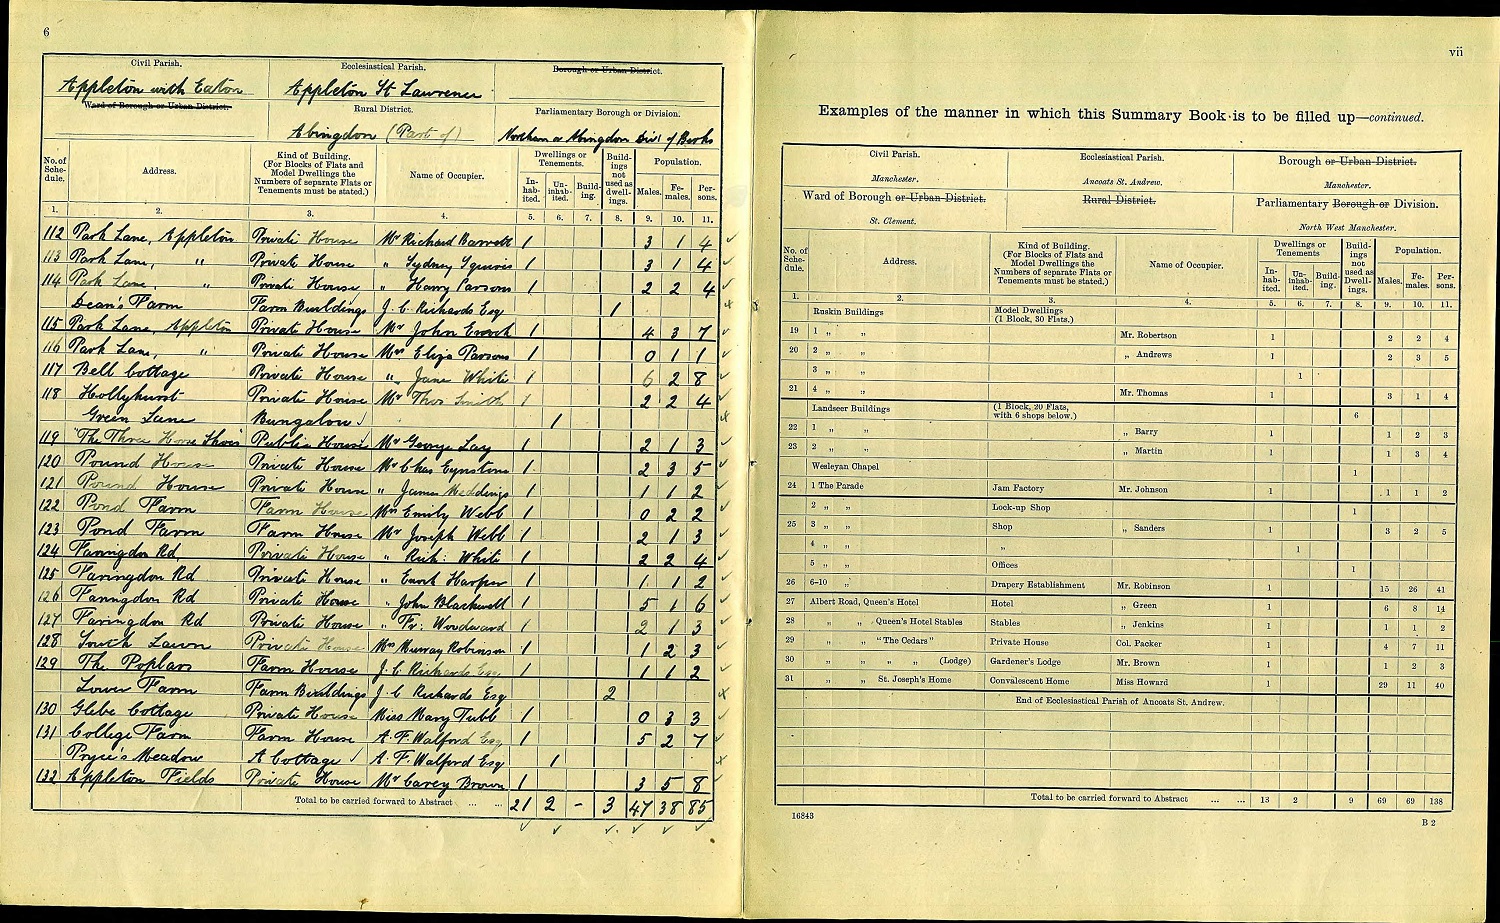 6
Civil Parish. Ecclesiastical Parish. Borough or Urban District.
Appleton with Eaton Appleton St Lawrence
Ward of Borough or Urban District. Rural District. Parliamentary Borough or Division.
Abingdon (Part of) Northern or Abingdon Divn of Berks
No. of Schedule. Address. Kind of Building. (For Blocks of Flats and Model Dwellings the Numbers of separate Flats or Tenements must be stated.) Name of Occupier. Dwellings or Tenements. Inhabited. Uninhabited. Building. Buildings not used as dwellings. Population. Males. Females. Persons.
1. 2. 3. 4. 5. 6. 7. 8. 9. 10. 11.
112 Park Lane, Appleton Private House Mr Richard Barrett 1 3 1 4
113 Park Lane, " Private House " Sydney Squires 1 3 1 4
114 Park Lane, " Private House " Harry Parsons 1 2 2 4
Dean's Farm Farm Buildings J. C. Richards Esq 1
115 Park Lane, Appleton Private House Mr John 1 4 3 7
116 Park Lane, " Private House Mrs Eliza Parsons 1 0 1 1
117 Bell Cottage Private House " Jane White 1 6 2 8
118 Hollyhurst Private House Mr Thos Smith 1 2 2 4
Green Lane Bungalow 1
119 "The Three Horse Shoes Public House Mr George Lay 1 2 1 3
120 Pound House Private House Mr Chas Eynstone 1 2 3 5
121 Pound House Private House " James Meddings 1 1 1 2
122 Pond Farm Farm House Mrs Emily Webb 1 0 2 2
123 Pond Farm Farm House Mr Joseph Webb 1 2 1 3
124 Faringdon Rd Private House " Rich: White 1 2 2 4
125 Faringdon Rd Private House " Ernest Harper 1 1 1 2
126 Faringdon Rd Private House " John Blackwell 1 5 1 6
127 Faringdon Rd Private House " Fr: Woodward 1 2 1 3
128 South Lawn Private House Mrs Murray Robinson 1 1 2 3
129 The Poplars Farm House J. C. Richards Esq. 1 1 1 2
Lower Farm Farm Buildings J. C Richards Esq 2
130 Glebe Cottage Private House Miss Mary Tubb 1 0 3 3
131 College Farm Farm House A. F. Walford Esq. 1 5 2 7
Pryce's Meadow A Cottage A. F. Walford Esq 1
132 Appleton Fields Private House Mr Carey Brown 1 3 5 8
Total to be carried forward to Abstract ... ... 21 2 - 3 47 38 85
vii
Examples of the manner in which this Summary Book is to be filled up—continued.
Civil Parish. Ecclesiastical Parish. Borough or Urban District.
Manchester. Ancoats St. Andrew. Manchester.
Ward of Borough or Urban District. Rural District. Parliamentary Borough or Division.
St. Clement. North West Manchester.
No. of Schedule. Address. Kind of Building. (For Blocks of Flats and Model Dwellings the Numbers of separate Flats or Tenements must be stated.) Name of Occupier. Dwellings or Tenements. Inhabited. Uninhabited. Building. Buildings not used as Dwellings. Population. Males. Females. Persons.
1. 2. 3. 4. 5. 6. 7. 8. 9. 10. 11.
Ruskin Buildings Model Dwellings (1 Block, 30 Flats.)
19 1 „ „ Mr. Robertson 1 2 2 4
20 2 „ „ „ Andrews 1 2 3 5
3 „ „ 1
21 4 „ „ Mr. Thomas 1 3 1 4
Landseer Buildings (1 Block, 20 Flats, with 6 shops below.) 6
22 1 „ „ „ Barry 1 1 2 3
23 2 „ „ „ Martin 1 1 3 4
Wesleyan Chapel 1
24 1 The Parade Jam Factory Mr. Johnson 1 1 1 2
2 „ „ Lock-up Shop 1
25 3 „ „ Shop „ Sanders 1 3 2 5
4 „ „ „ 1
5 „ „ Offices 1
26 6-10 „ Drapery Establishment Mr. Robinson 1 15 26 41
27 Albert Road, Queen's Hotel Hotel „ Green 1 6 8 14
28 „ „ Queen's Hotel Stables Stables „ Jenkins 1 1 1 2
29 „ „ "The Cedars" Private House Col. Packer 1 4 7 11
30 „ „ „ „ (Lodge) Gardener's Lodge Mr. Brown 1 1 2 3
31 „ „ St. Joseph's Home Convalescent Home Miss Howard 1 29 11 40
End of Ecclesiastical Parish of Ancoats St. Andrew.
Total to be carried forward to Abstract ... ... 13 2 9 69 69 138
16843 B 2